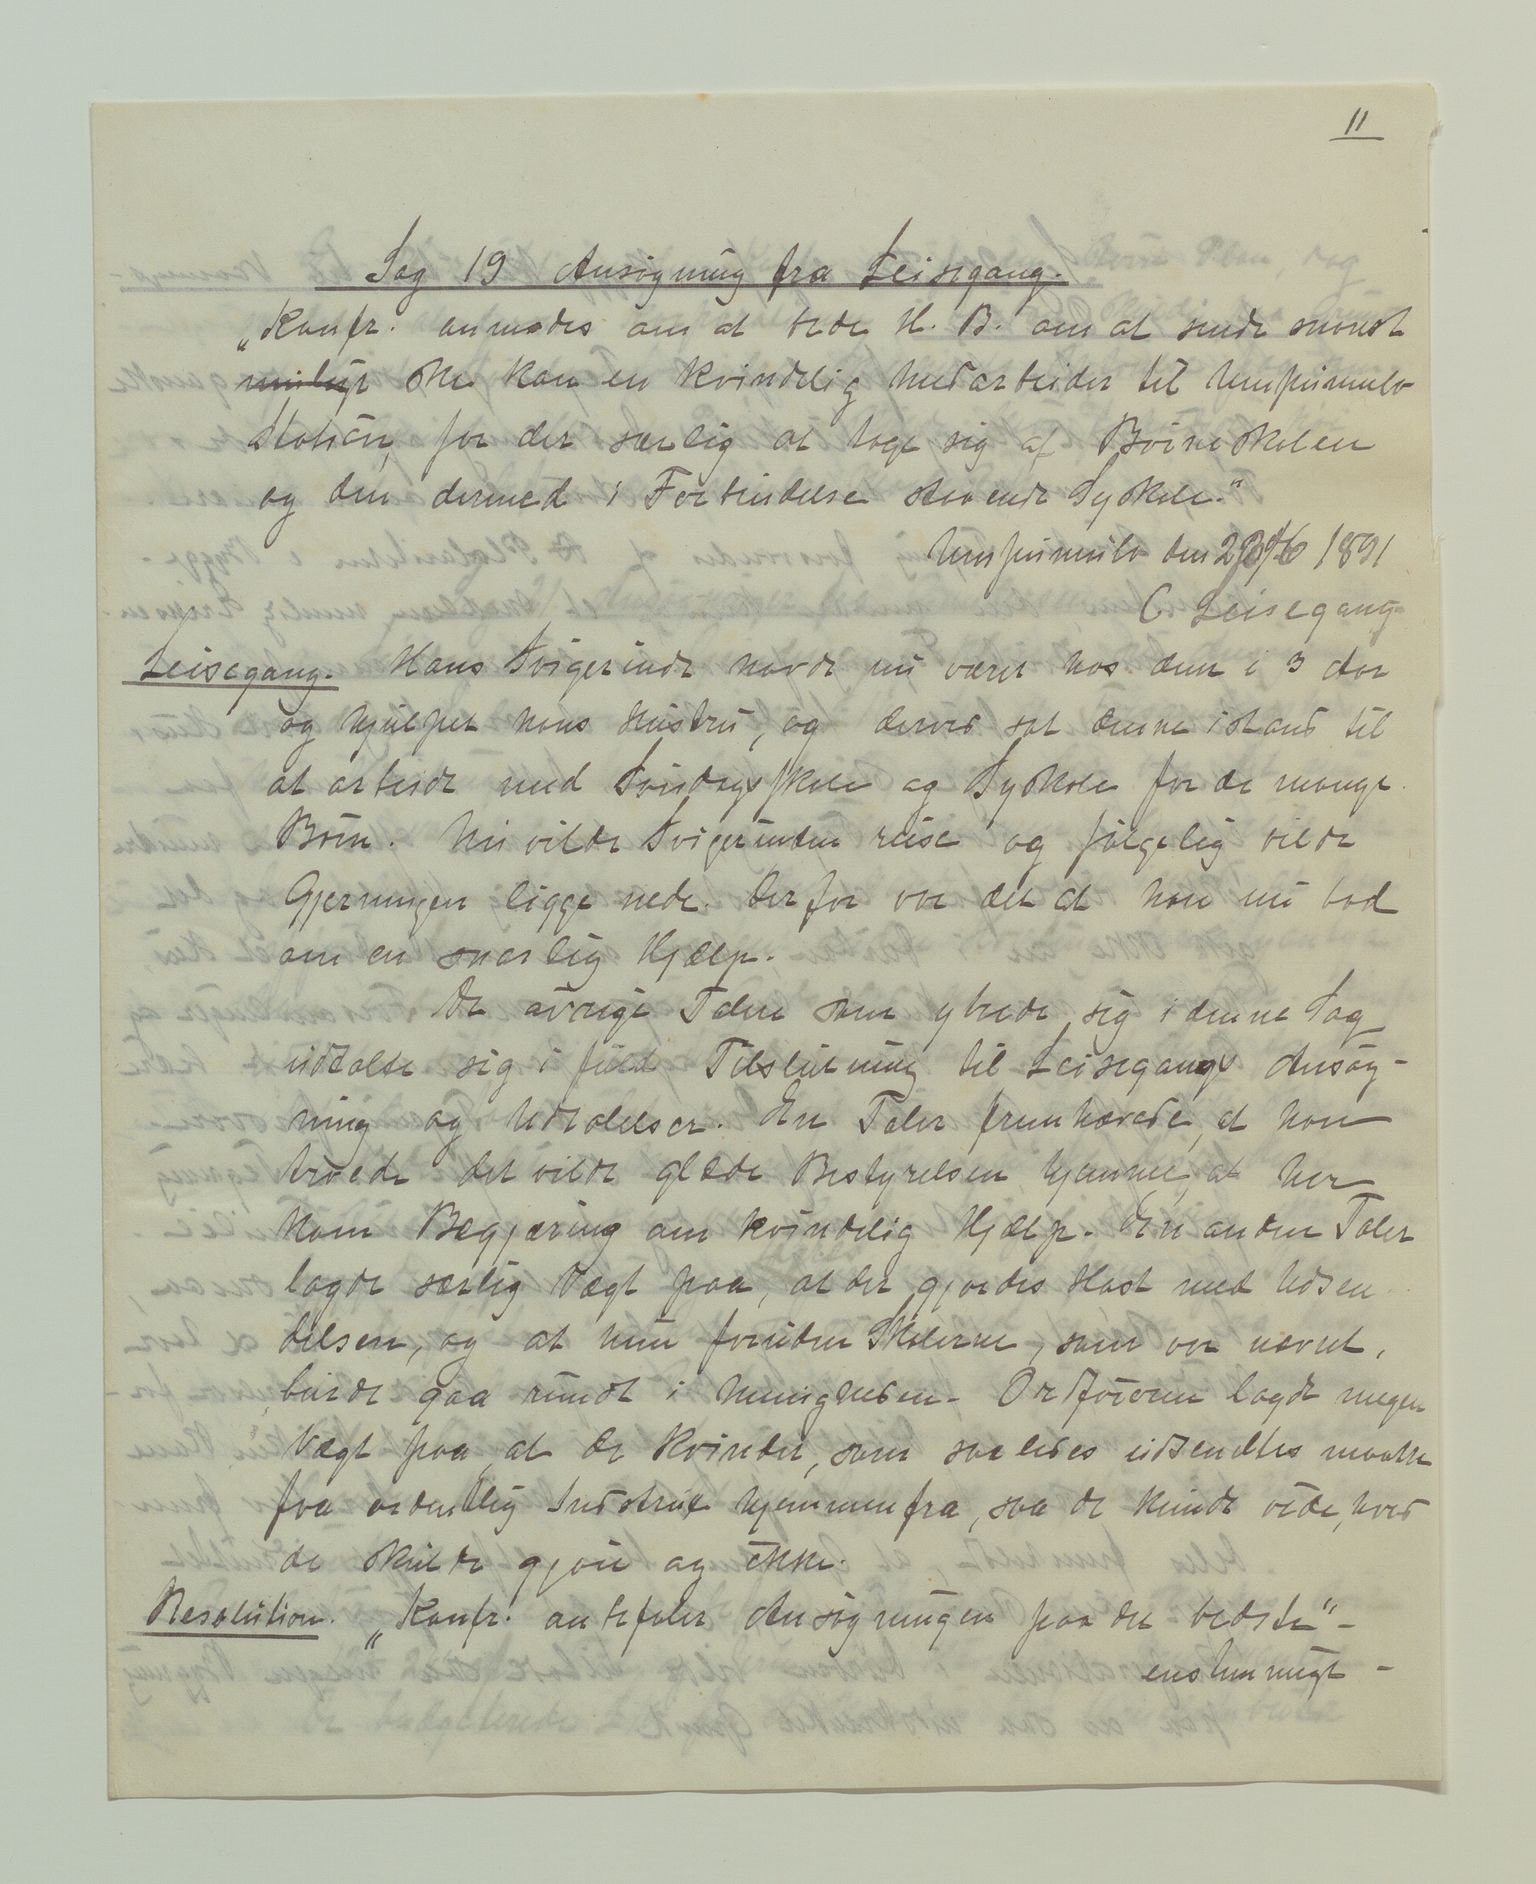 11
Sag 19 Ansøgning fra Leisegang.
"Konfr. anmodes om at bede H. B. om at sende snarest
muligt ske kan en kvindelig Medarbeider til Umpumulo
Station, for der særlig at tage sig af Børneskolen
og den dermed i Forbindelse staaende Syskole."
Umpumulo den 1891
C Leisegang
Leisegang. Hans Svigerinde havde nu været hos dem i 3 Aar
og hjulpet hans Hustru, og derved sat denne istand til
at arbeide med Søndagsskole og Syskole for de mange
Børn. Nu vilde Svigerinden reise og følgelig vilde
Gjerningen ligge nede. Derfor var det at han nu bad
om en snarlig Hjælp.
De øvrige Talere som ytrede sig i denne Sag
udtalte sig i fuld Tilslutning til Leisegangs Ansøg-
ning og Udtalelser. En Taler fremhævede, at han
troede det vilde glæde Bestyrelsen hjemme, at her
kom Begjæring om kvindelig Hjælp. En anden Taler
lagde særlig Vægt paa, at der gjordes Hast med Udsen-
delsen, og at hun foruden Skolerne, som var nævnt,
burde gaa rundt i Menigheden. Ordføreren lagde megen
Vægt paa, at de Kvinder, som saaledes udsendtes maatte
faa ordentlig Instrux hjemmenfra, saa de kunde vide, hvad
de skulde gjøre og ikke.
Resolution. "Konfr. anbefaler Ansøgningen paa det bedste" -
enstemmigt -